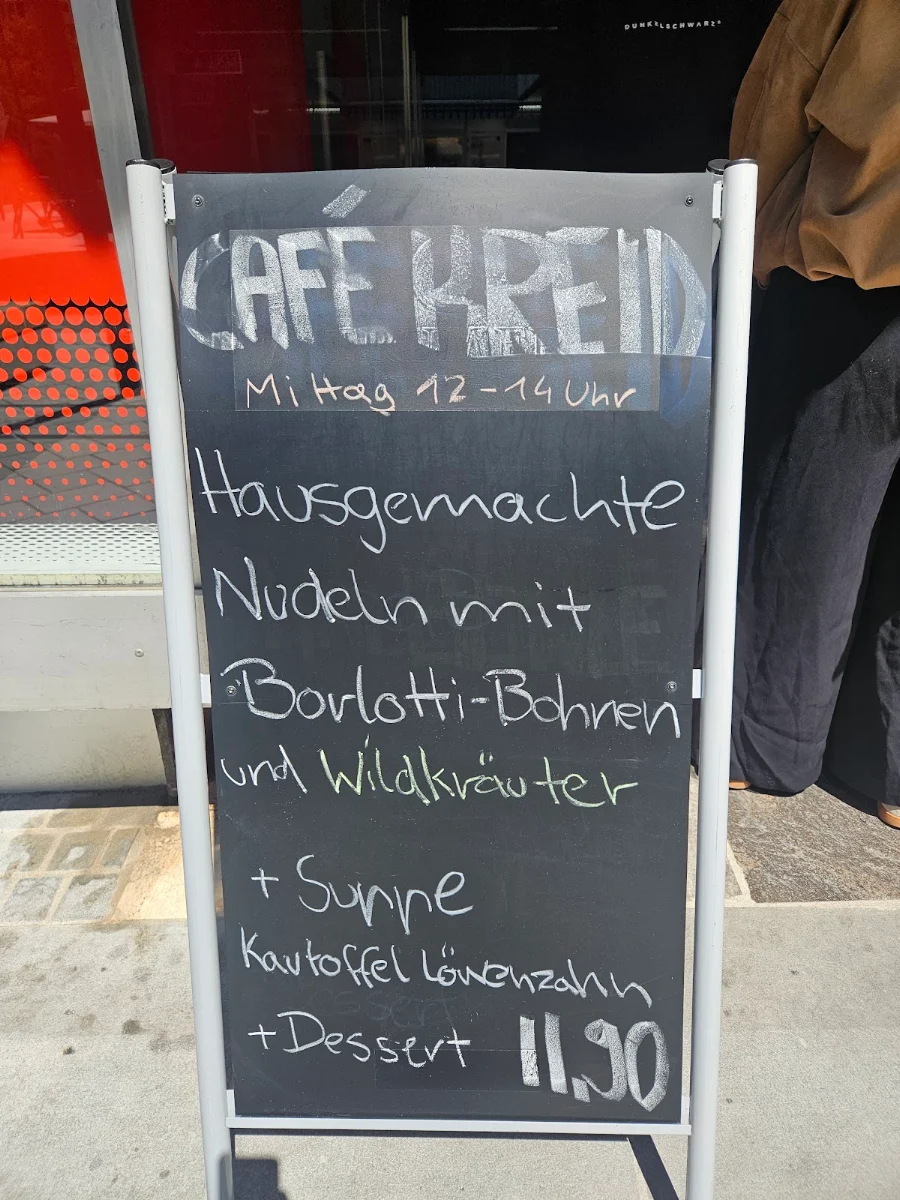 DUNKELSCHWARZ
CAFÉ KREID
Mittag 12-14 Uhr
Hausgemachte
Nudeln mit
Borlotti-Bohnen
und Wildkräuter
+ Suppe
Kartoffel Löwenzahn
+Dessert 11,90